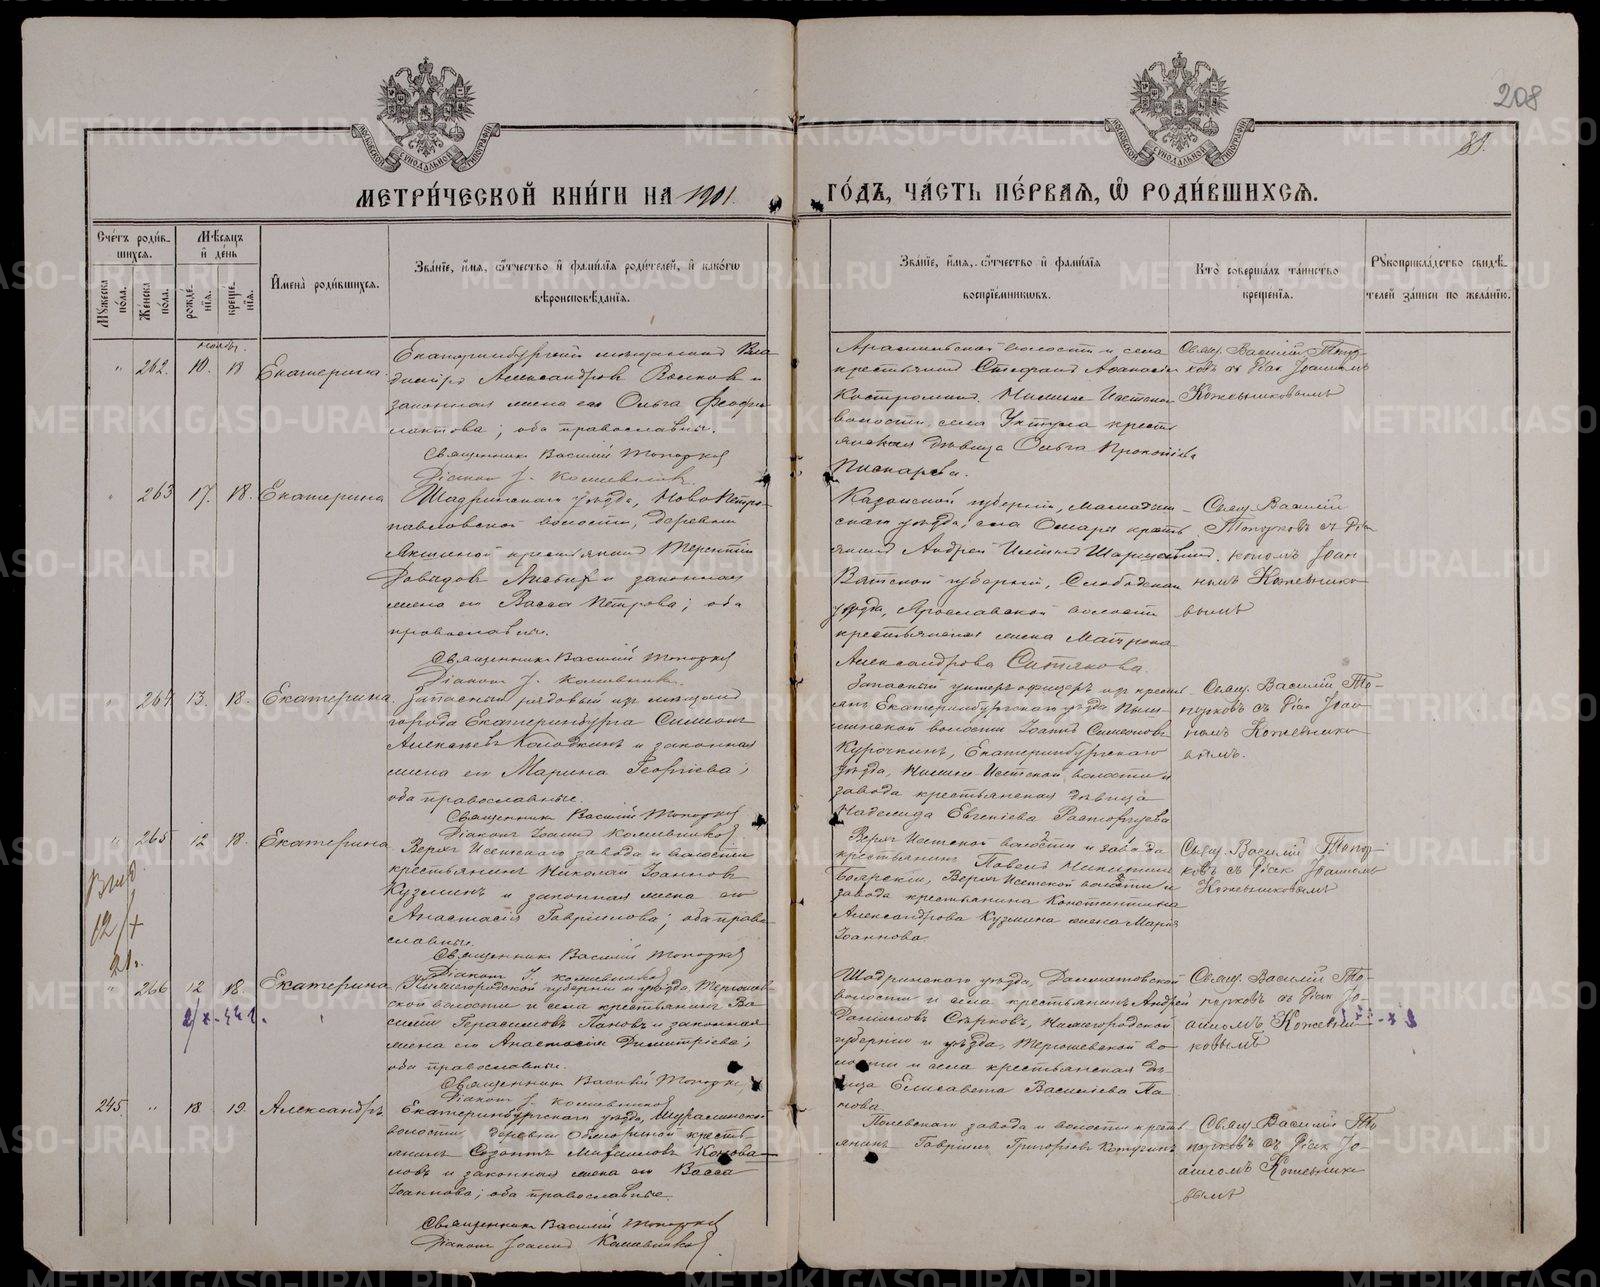 208
89.
МЕТРИ́ЧЕСКОЙ КНИ́ГИ НА 1901
ГО́ДЪ, ЧА́СТЬ ПЕ́РВАЯ, Ѡ РОДИ́ВШИХСЯ.
Сче́тъ роди́в-
шихся.
Мѣ́сяцъ
и де́нь
Мꙋ́жеска по́ла.
Же́нска по́ла.
рожде́нїя.
креще́нїя.
Имена̀ роди́вшихся.
Зва́нїе, и́мя, ѻ҆́тчество и фами́лїя роди́телей, и како́гѡ
вѣроисповѣ́данїя.
Зва́нїе, и́мя, ѻ҆́тчество и фами́лїя
воспрїе́мниковъ.
Кто̀ соверша́лъ та́инство
креще́нїя.
Рꙋкоприкла́дство свидѣ́-
телей за́писи по жела́нїю.
Ноябрь
" 262. 10. 18 Екатерина.
Екатеринбургскій мѣщанинъ Вла-
диміръ Александровъ Волковъ и
законная жена его Ольга Феофи-
лактова; оба православные.
Священникъ Василій Топорковъ
Діаконъ І. Кожевниковъ.
Арамильской волости и села
крестьянинъ Стефанъ Афанасьевъ
Костроминъ. Нижне Исетской
волости, села Уктуса кресть
янская дѣвица Ольга Прокопіева
Пискарева.
Свящ. Василій Топор-
ковъ съ діак Іоанномъ
Кожевниковымъ
" 263 17. 18. Екатерина
Шадринскаго уѣзда, НовоПетро-
павловской волости, деревни
крестьянинъ Терентій
Давидовъ и законная
жена его Васса Петрова; оба
православные.
Священникъ Василій Топорковъ
Діаконъ І. Кожевниковъ.
Казанской губерніи, Мамадыш-
скаго уѣзда, села Омары кресть
янинъ Андрей
Вятской губерніи, Слободскаго
уѣзда, Ярославской волости
крестьянская жена Матрона
Александрова Ситякова
Свящ. Василій
Топорковъ съ Діа-
кономъ Іоан
номъ Кожевнико
вымъ
" 264 13. 18. Екатерина.
Запасный рядовый изъ мѣщанъ
города Екатеринбурга Симеонъ
Алексѣевъ Колодкинъ и законная
жена его Марина Георгіева;
оба православные.
Священникъ Василій Топорковъ
Діаконъ Іоаннъ Кожевниковъ
Запасный унтеръ офицеръ изъ кресть
янъ Екатеринбургскаго уѣзда Пыш-
минской волости Іоаннъ Симеоновъ
Курочкинъ, Екатеринбургскаго
уѣзда, Нижне-Исетской волости и
завода крестьянская дѣвица
Надежда Евгеніева Расторгуева
Свящ. Василій То-
порковъ съ діак Іоан
номъ Кожевнико
вымъ.
" 265 12 18. Екатерина.
12/X
21г.
Верхъ Исетскаго завода и волости
крестьянинъ Николай Іоанновъ
Кузминъ и законная жена его
Анастасія Гавріилова; оба право
славные.
Священникъ Василій Топорковъ
Діаконъ І. Кожевниковъ
Верхъ Исетской волости и завода
крестьянинъ Павелъ Никитинъ
Боярскій, Верхъ Исетской волости и
завода крестьянина Константина
Александрова Кузмина жена Марія
Іоаннова
Свящ. Василій Топор-
ковъ съ діак Іоанномъ
Кожевниковымъ
" 266 12 18. Екатерина.
Нижегородской губерніи и уѣзда, Терюшев
ской волости и села крестьянинъ Ва-
силій Герасимовъ Пановъ и законная
жена его Анастасія Димитріева;
оба православные.
Священникъ Василій Топорковъ
Діаконъ І. Кожевниковъ
Шадринскаго уѣзда, Далматовской
волости и села крестьянинъ Андрей
Данииловъ Сѣрковъ, Нижегородской
губерніи и уѣзда, Терюшевской во-
лости и села крестьянская дѣ-
вица Елисавета Василіева Па-
нова.
Свящ. Василій То-
порковъ съ діак Іо-
анномъ Кожевни-
ковымъ
245. " 18 19. Александръ.
Екатеринбургскаго уѣзда,
волости деревни кресть
янинъ Созонтъ Коново-
ловъ и законная жена его Васса
Іоаннова; оба православные.
Священникъ Василій Топорковъ
Діаконъ Іоаннъ Кожевниковъ.
Полевскаго завода и волости кресть
янинъ Гавріилъ Григорьевъ
Свящ. Василій То
порковъ съ діак Іо-
анномъ Кожевнико
вымъ
METRIKI.GASO-URAL.RU